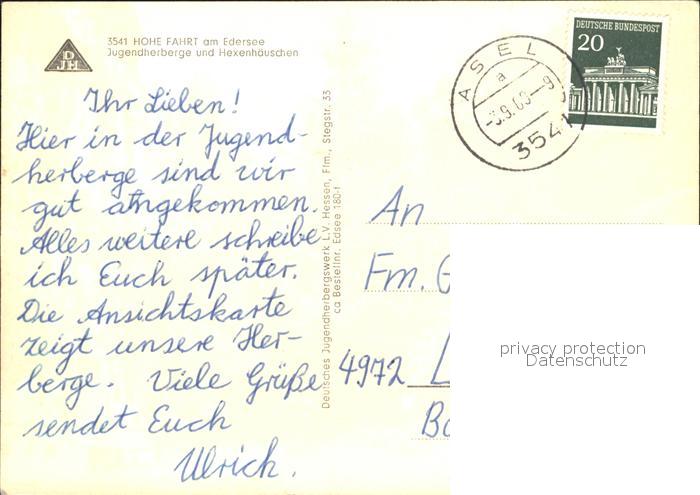 DJH
3541 HOHE FAHRT am Edersee
Jugendherberge und Hexenhäuschen
DEUTSCHE BUNDESPOST
20
ASEL
a
3541
Ihr Lieben!
Hier in der Jugend-
herberge sind wir
gut angekommen.
Alles weitere schreibe
ich Euch später.
Die Ansichtskarte
zeigt unsere Her-
berge. Viele Grüße
sendet Euch
Ulrich.
Deutsches Jugendherbergswerk L.V. Hessen, Ffm., Stegstr. 33
ca Bestellnr. Edsee 180-1
An
Fm. G
4972 L
privacy protection
Datenschutz